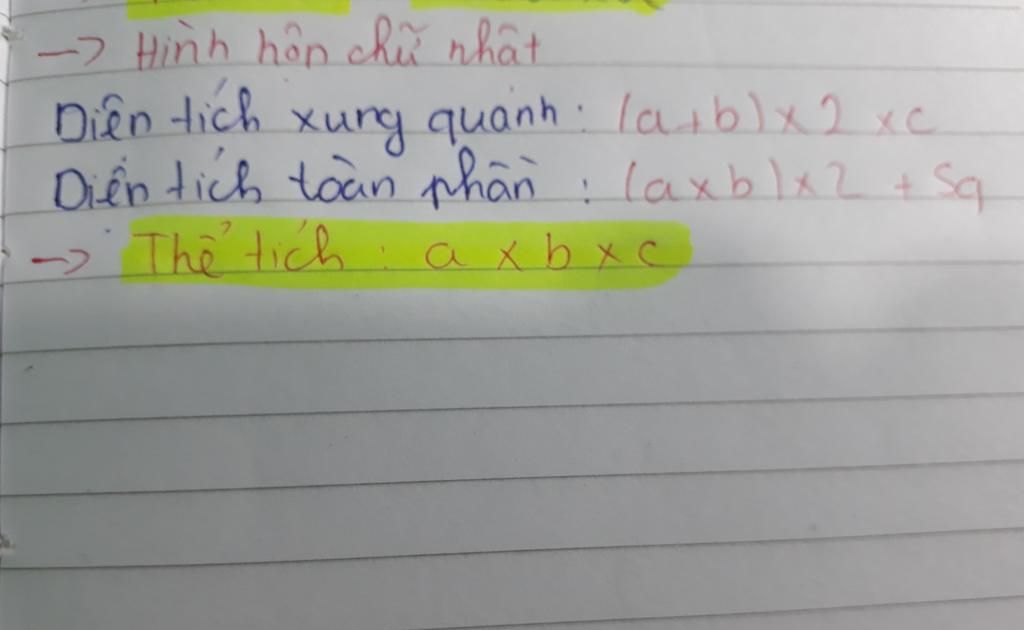 → Hình hộp chữ nhật
Diện tích xung quanh : (a+b) x 2 x c
Diện tích toàn phần : (a x b) x 2 + Sq
→ Thể tích : a x b x c